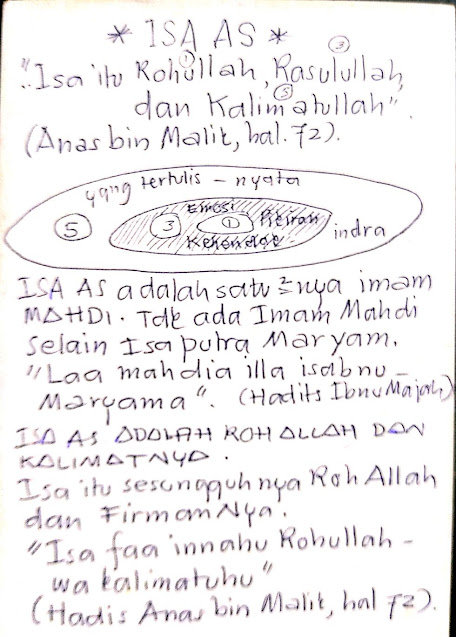 * ISA AS *
① ③
"Isa itu Rohullah, Rasulullah,
⑤
dan Kalimatullah".
(Anas bin Malik, hal. 72).
yang tertulis - nyata
Emosi
⑤ ③ ① Pikiran
indra
Kehendak
ISA AS adalah satu²nya imam
MAHDI. Tdk ada Imam Mahdi
selain Isa putra Maryam.
"Laa mahdia illa isabnu -
Maryama". (Hadits Ibnu Majah)
ISA AS ADALAH ROH ALLAH DAN
KALIMATNYA.
Isa itu sesungguhnya Roh Allah
dan FirmanNya.
"Isa faa innahu Rohullah -
wa kalimatuhu"
(Hadis Anas bin Malik, hal 72).